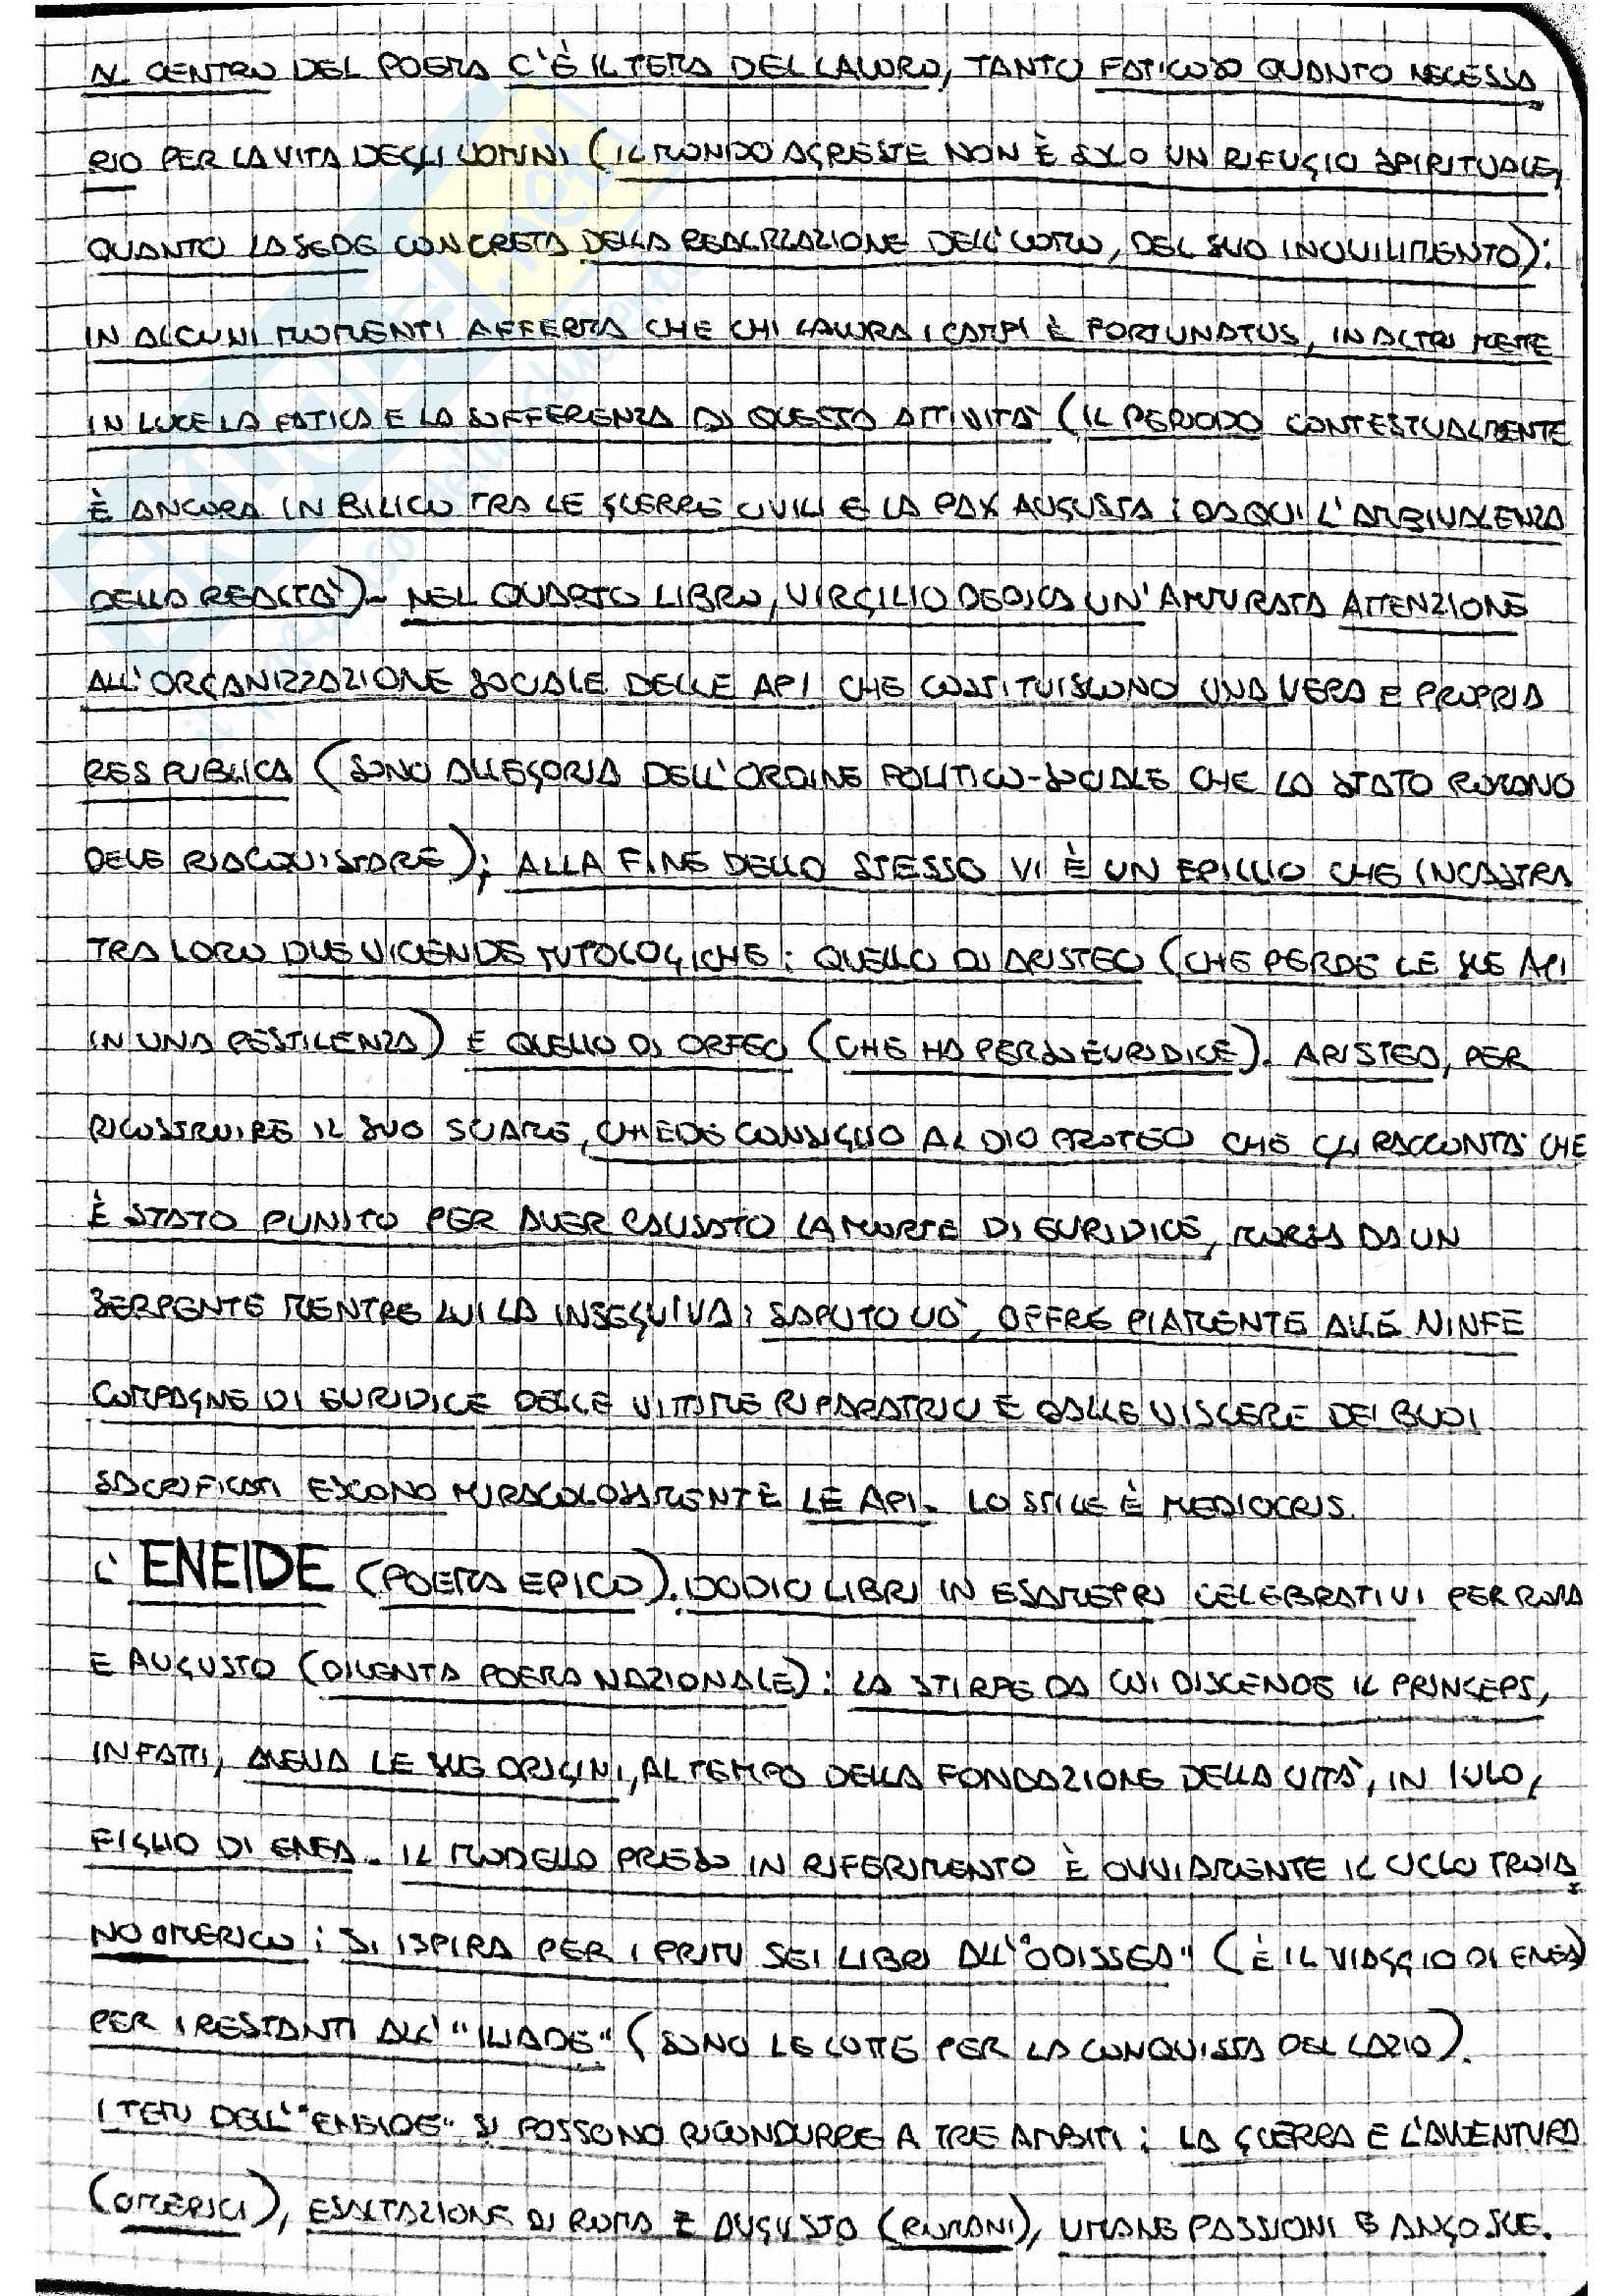 AL CENTRO DEL POEMA C'È IL TEMA DEL LAVORO, TANTO FATICOSO QUANTO NECESSA
RIO PER LA VITA DEGLI UOMINI (IL MONDO AGRESTE NON È SOLO UN RIFUGIO SPIRITUALE,
QUANTO LA SEDE CONCRETA DELLA REALIZZAZIONE DELL'UOMO, DEL SUO INCIVILIMENTO):
IN ALCUNI MOMENTI AFFERMA CHE CHI LAVORA I CAMPI È FORTUNATUS, IN ALTRI METTE
IN LUCE LA FATICA E LA SOFFERENZA DI QUESTA ATTIVITÀ (IL PERIODO CONTESTUALMENTE
È ANCORA IN BILICO TRA LE GUERRE CIVILI E LA PAX AUGUSTA: DA QUI L'AMBIVALENZA
DELLA REALTÀ). NEL QUARTO LIBRO, VIRGILIO DEDICA UN'ACCURATA ATTENZIONE
ALL'ORGANIZZAZIONE SOCIALE DELLE API CHE COSTITUISCONO UNA VERA E PROPRIA
RES PUBLICA (SONO ALLEGORIA DELL'ORDINE POLITICO-SOCIALE CHE LO STATO ROMANO
DEVE RIACQUISTARE); ALLA FINE DELLO STESSO VI È UN EPILLIO CHE INCASTRA
TRA LORO DUE VICENDE MITOLOGICHE: QUELLO DI ARISTEO (CHE PERDE LE SUE API
IN UNA PESTILENZA) E QUELLO DI ORFEO (CHE HA PERSO EURIDICE). ARISTEO, PER
RICOSTRUIRE IL SUO SCIAME, CHIEDE CONSIGLIO AL DIO PROTEO CHE GLI RACCONTA CHE
È STATO PUNITO PER AVER CAUSATO LA MORTE DI EURIDICE, MORSA DA UN
SERPENTE MENTRE LUI LA INSEGUIVA: SAPUTO CIÒ, OFFRE PIAMENTE ALLE NINFE
COMPAGNE DI EURIDICE DELLE VITTIME RIPARATRICI E DALLE VISCERE DEI BUOI
SACRIFICATI ESCONO MIRACOLOSAMENTE LE API. LO STILE È MEDIOCRIS.
L'ENEIDE (POEMA EPICO). DODICI LIBRI IN ESAMETRI CELEBRATIVI PER ROMA
E AUGUSTO (DIVENTA POEMA NAZIONALE): LA STIRPE DA CUI DISCENDE IL PRINCEPS,
INFATTI, AVEVA LE SUE ORIGINI, AL TEMPO DELLA FONDAZIONE DELLA CITTÀ, IN IULO,
FIGLIO DI ENEA. IL MODELLO PRESO IN RIFERIMENTO È OVVIAMENTE IL CICLO TROIA
NO OMERICO: SI ISPIRA PER I PRIMI SEI LIBRI ALL'"ODISSEA" (È IL VIAGGIO DI ENEA)
PER I RESTANTI ALL'"ILIADE" (SONO LE LOTTE PER LA CONQUISTA DEL LAZIO).
I TEMI DELL'"ENEIDE" SI POSSONO RICONDURRE A TRE AMBITI: LA GUERRA E L'AVVENTURA
(OMERICI), ESALTAZIONE DI ROMA E AUGUSTO (ROMANI), UMANE PASSIONI E ANGOSCE.